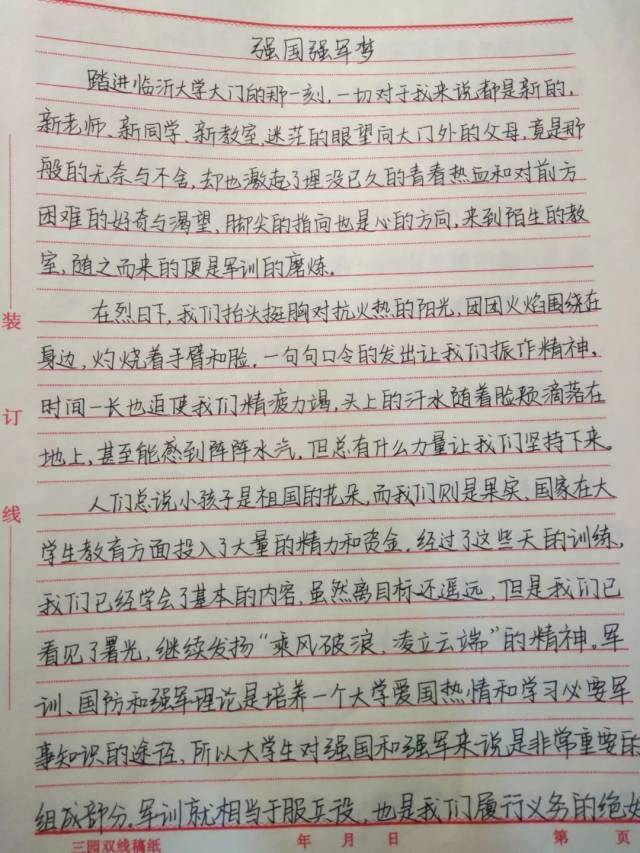 强国强军梦
踏进临沂大学大门的那一刻，一切对于我来说都是新的，
新老师、新同学、新教室，迷茫的眼望向大门外的父母，竟是那
般的无奈与不舍，却也激起了埋没已久的青春热血和对前方
困难的好奇与渴望、脚尖的指向也是心的方向，来到陌生的教
室，随之而来的便是军训的磨炼。
在烈日下，我们抬头挺胸对抗火热的阳光，团团火焰围绕在
身边，灼烧着手臂和脸，一句句口令的发出让我们振作精神，
时间一长也迫使我们精疲力竭，头上的汗水随着脸颊滴落在
地上，甚至能感到阵阵水汽，但总有什么力量让我们坚持下来。
人们总说小孩子是祖国的花朵，而我们则是果实，国家在大
学生教育方面投入了大量的精力和资金，经过了这些天的训练，
我们已经学会了基本的内容，虽然离目标还遥远，但是我们已
看见了曙光，继续发扬“乘风破浪，凌立云端”的精神。军
训、国防和强军理论是培养一个大学爱国热情和学习必要军
事知识的途径，所以大学生对强国和强军来说是非常重要的
组成部分，军训就相当于服兵役，也是我们履行义务的绝好
装
订
线
三园双线稿纸 年 月 日 第 页